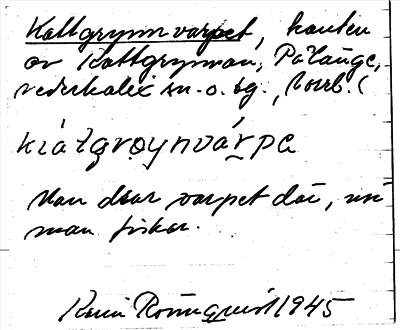 Kattgrynnvarpet, kanten
av Kattgrynnan, Pålänge,
Nederkalix sn. o. sg.,
kiatgroynvárpe
Man drar varpet där, när
man fiskar.
Rönnquist 1945